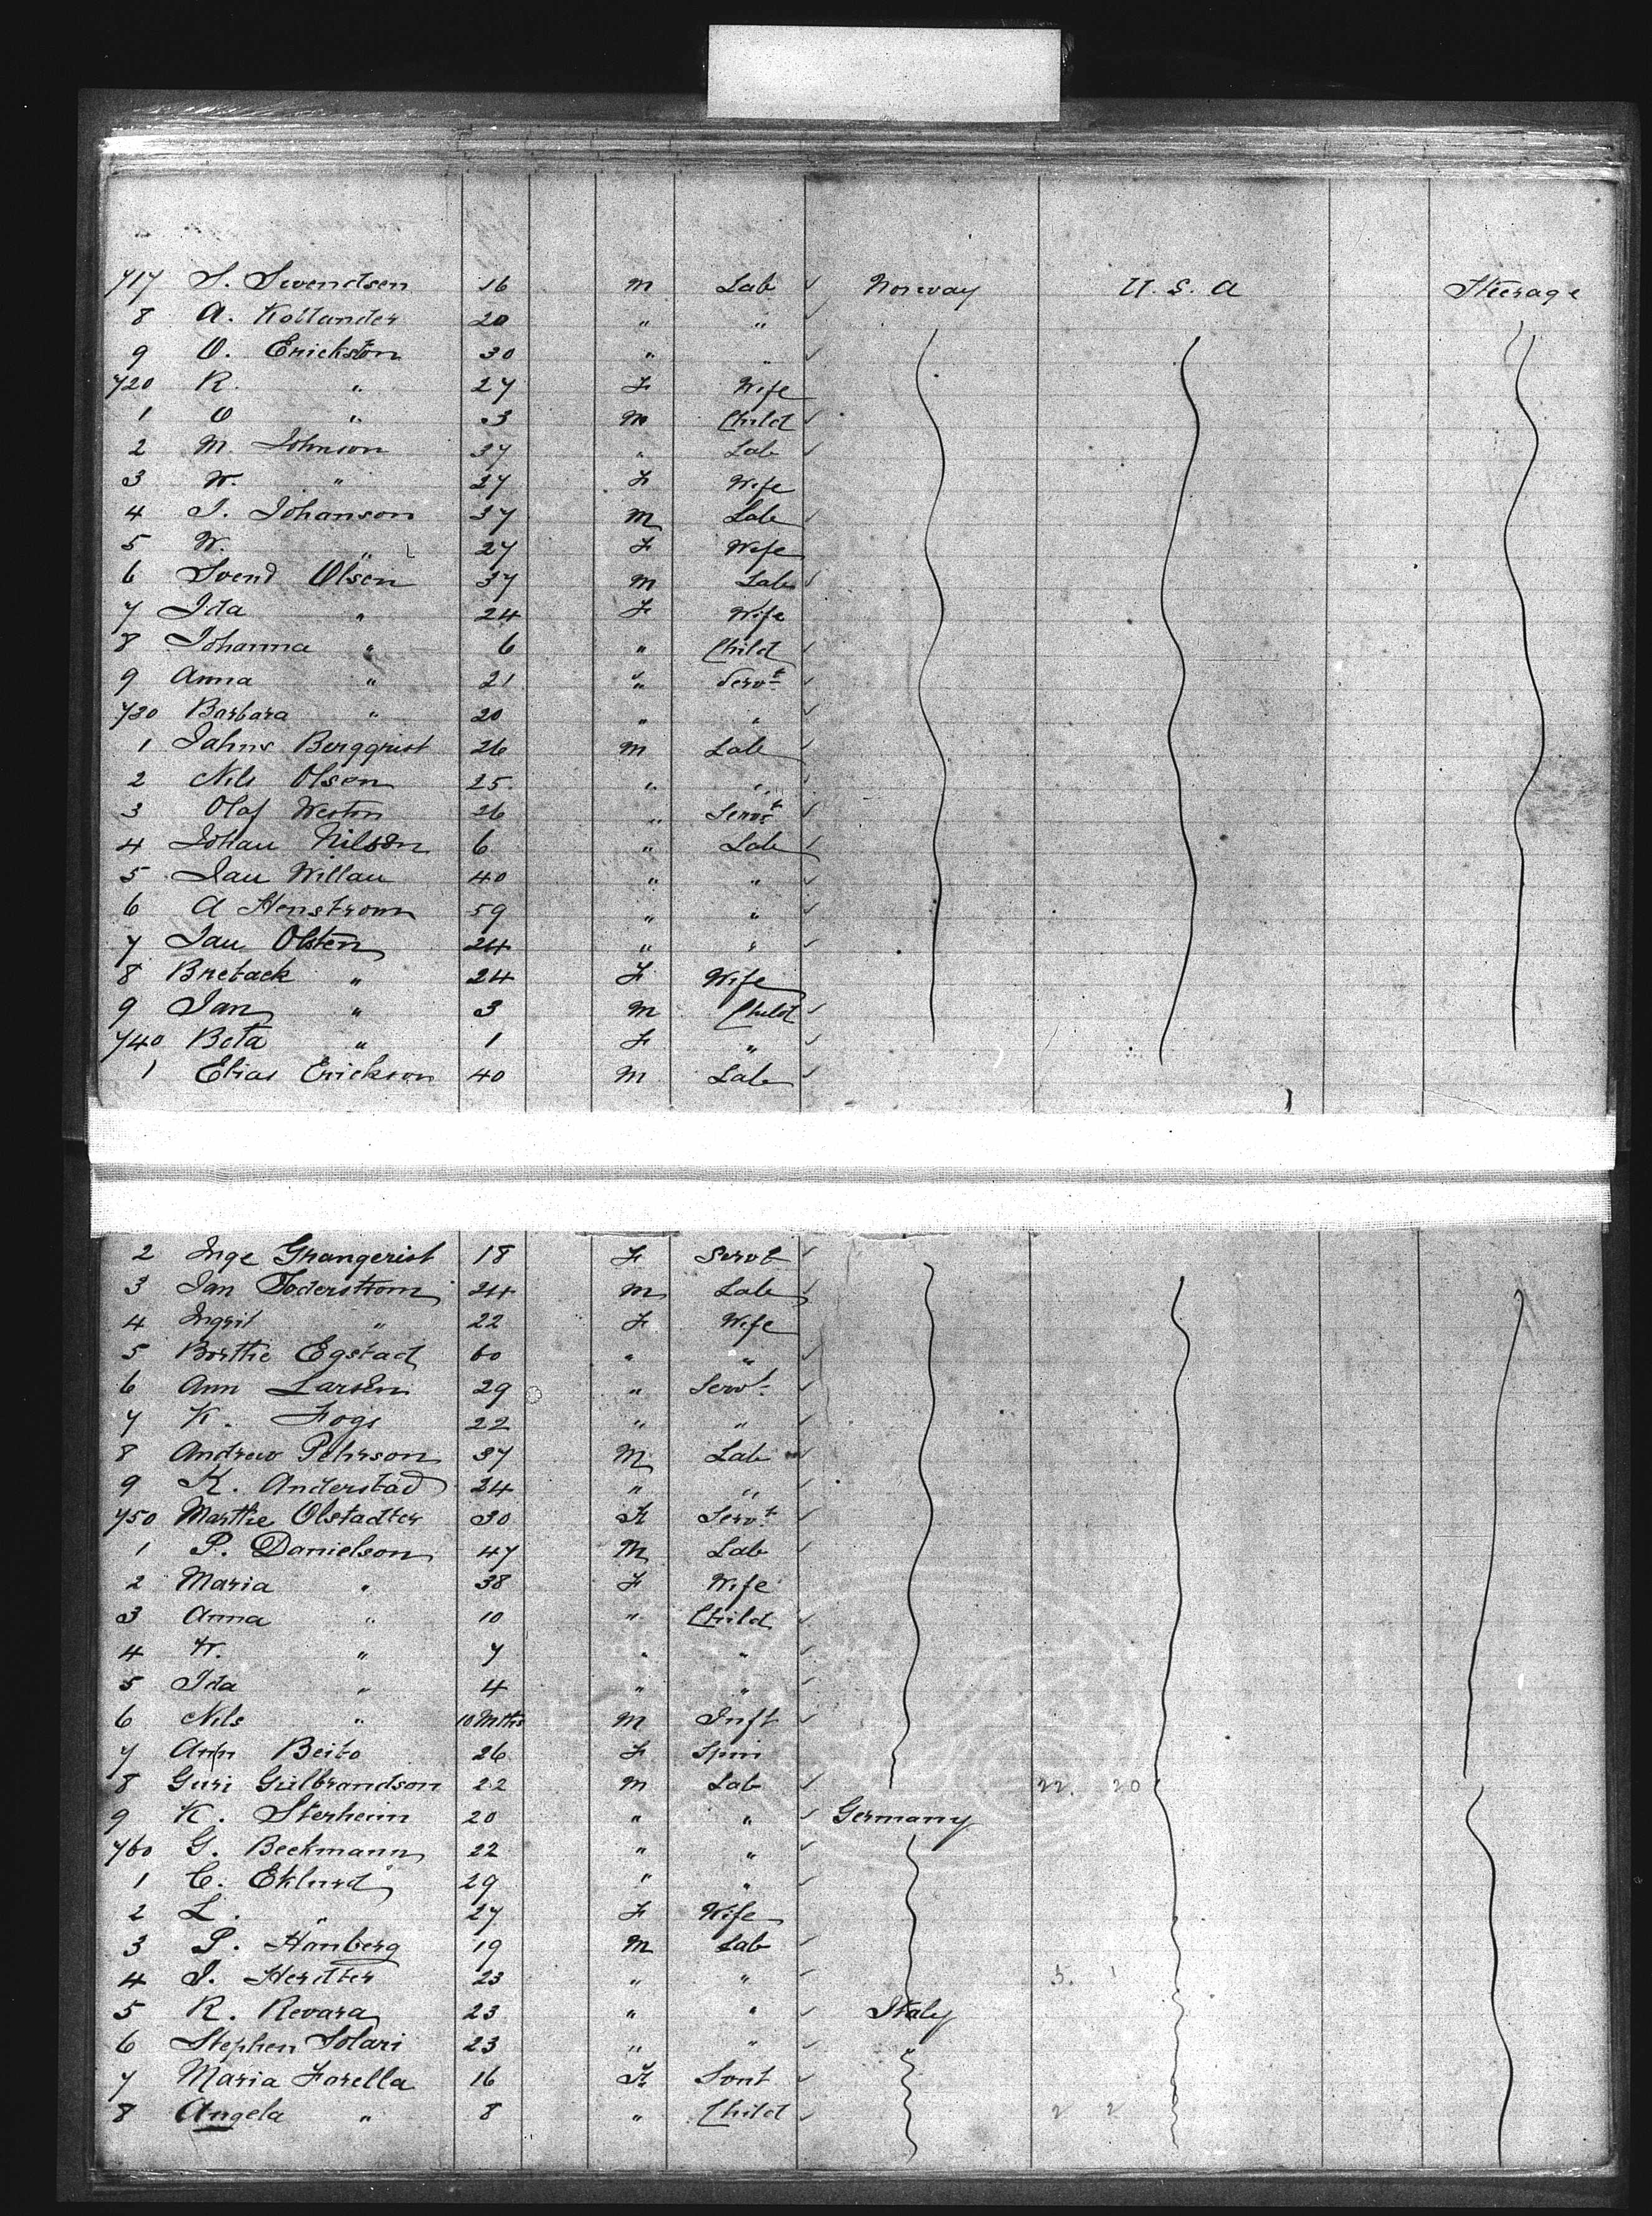 717 S. Swendsen 16 M Lab ✓ Norway U.S.A Steerage
8 A. Kollander 20 " " ✓
9 O. Erickson 30 " " ✓
720 R. " 27 F Wife
1 O " 3 M Child ✓
2 M. Johnson 37 " Lab ✓
3 W. " 27 F Wife
4 J. Johanson 37 M Lab ✓
5 W. " 27 F Wife
6 Svend Olsen 37 M Lab ✓
7 Ida " 24 F Wife
8 Johanna " 6 " Child ✓
9 Anna " 21 " Servt ✓
730 Barbara " 20 " " ✓
1 Jahns Bergqrist 26 M Lab ✓
2 Nils Olsen 25 " " ✓
3 Olaf Weston 26 " Servt ✓
4 Johau Nilson 6 " Lab ✓
5 Jau Willau 40 " " ✓
6 A Henstrom 59 " " ✓
7 Jau Olsten 24 " " ✓
8 Bretack " 24 F Wife
9 Jan " 3 M Child ✓
740 Beta " 1 F " ✓
1 Elias Erickson 40 M Lab ✓
2 Inge Grangerist 18 F Servt ✓
3 Jan Soderstrom 24 M Lab ✓
4 Ingrit " 22 F Wife
5 Borthe Egstad 60 " " ✓
6 Ann Larsen 29 " Servt ✓
7 K. Fogs 22 " " ✓
8 Andrew Pehrson 37 M Lab ✓
9 K. Anderstad 24 " " ✓
750 Marthe Olstadter 30 F Servt ✓
1 P. Danielson 47 M Lab ✓
2 Maria " 38 F Wife
3 Anna " 10 " Child ✓
4 W. " 7 " " ✓
5 Ida " 4 " " ✓
6 Nils " 10 Mths M Inft ✓
7 Ann Beito 26 F Spin
8 Guri Gulbrandson 22 M Lab ✓ 22. 20
9 K. Sterheim 20 " " ✓ Germany
760 G. Beckmann 22 " " ✓
1 C. Eklund 29 " " ✓
2 L. " 27 F Wife
3 P. Hanberg 19 M Lab ✓
4 J. Herdter 23 " " ✓ 5. 1
5 R. Revara 23 " " ✓ Italy
6 Stephen Solari 23 " " ✓ "
7 Maria Forella 16 F Svnt ✓
8 Angela " 8 " Child ✓ 2 2